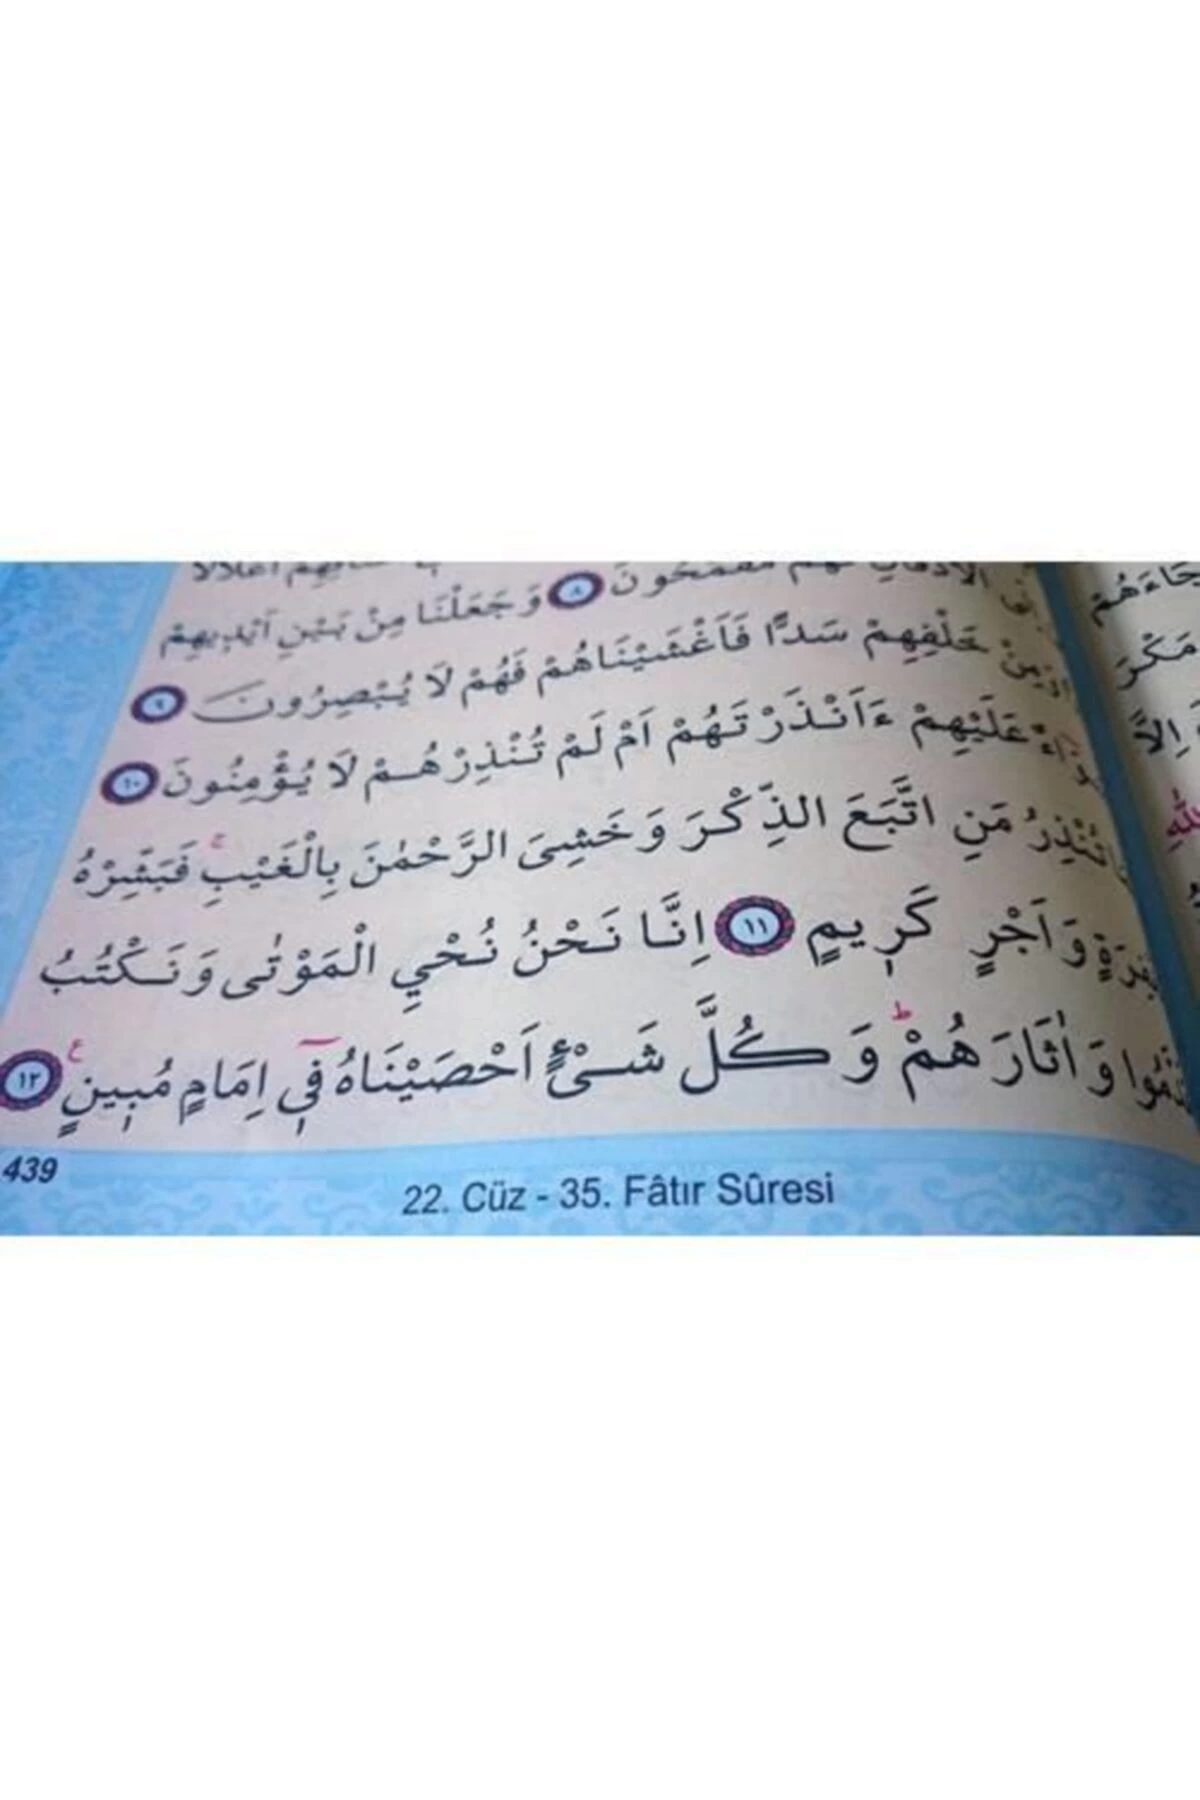 الْاَذْقَانِ فَهُمْ مُقْمَحُونَ ﴿٨﴾ وَجَعَلْنَا مِنْ بَيْنِ اَيْدٖيهِمْ
خَلْفِهِمْ سَدًّا فَاَغْشَيْنَاهُمْ فَهُمْ لَا يُبْصِرُونَ ﴿٩﴾
عَلَيْهِمْ ءَاَنْذَرْتَهُمْ اَمْ لَمْ تُنْذِرْهُمْ لَا يُؤْمِنُونَ ﴿١٠﴾
تُنْذِرُ مَنِ اتَّبَعَ الذِّكْرَ وَخَشِىَ الرَّحْمٰنَ بِالْغَيْبِۚ فَبَشِّرْهُ
وَاَجْرٍ كَرٖيمٍ ﴿١١﴾ اِنَّا نَحْنُ نُحْيِ الْمَوْتٰى وَنَكْتُبُ
وَاٰثَارَهُمْۜ وَكُلَّ شَىْءٍ اَحْصَيْنَاهُ فٖٓى اِمَامٍ مُبٖينٍ ﴿١٢﴾
439
22. Cüz - 35. Fâtır Sûresi
جَاءَهُمْ
مَكْرَ
اِلَّا